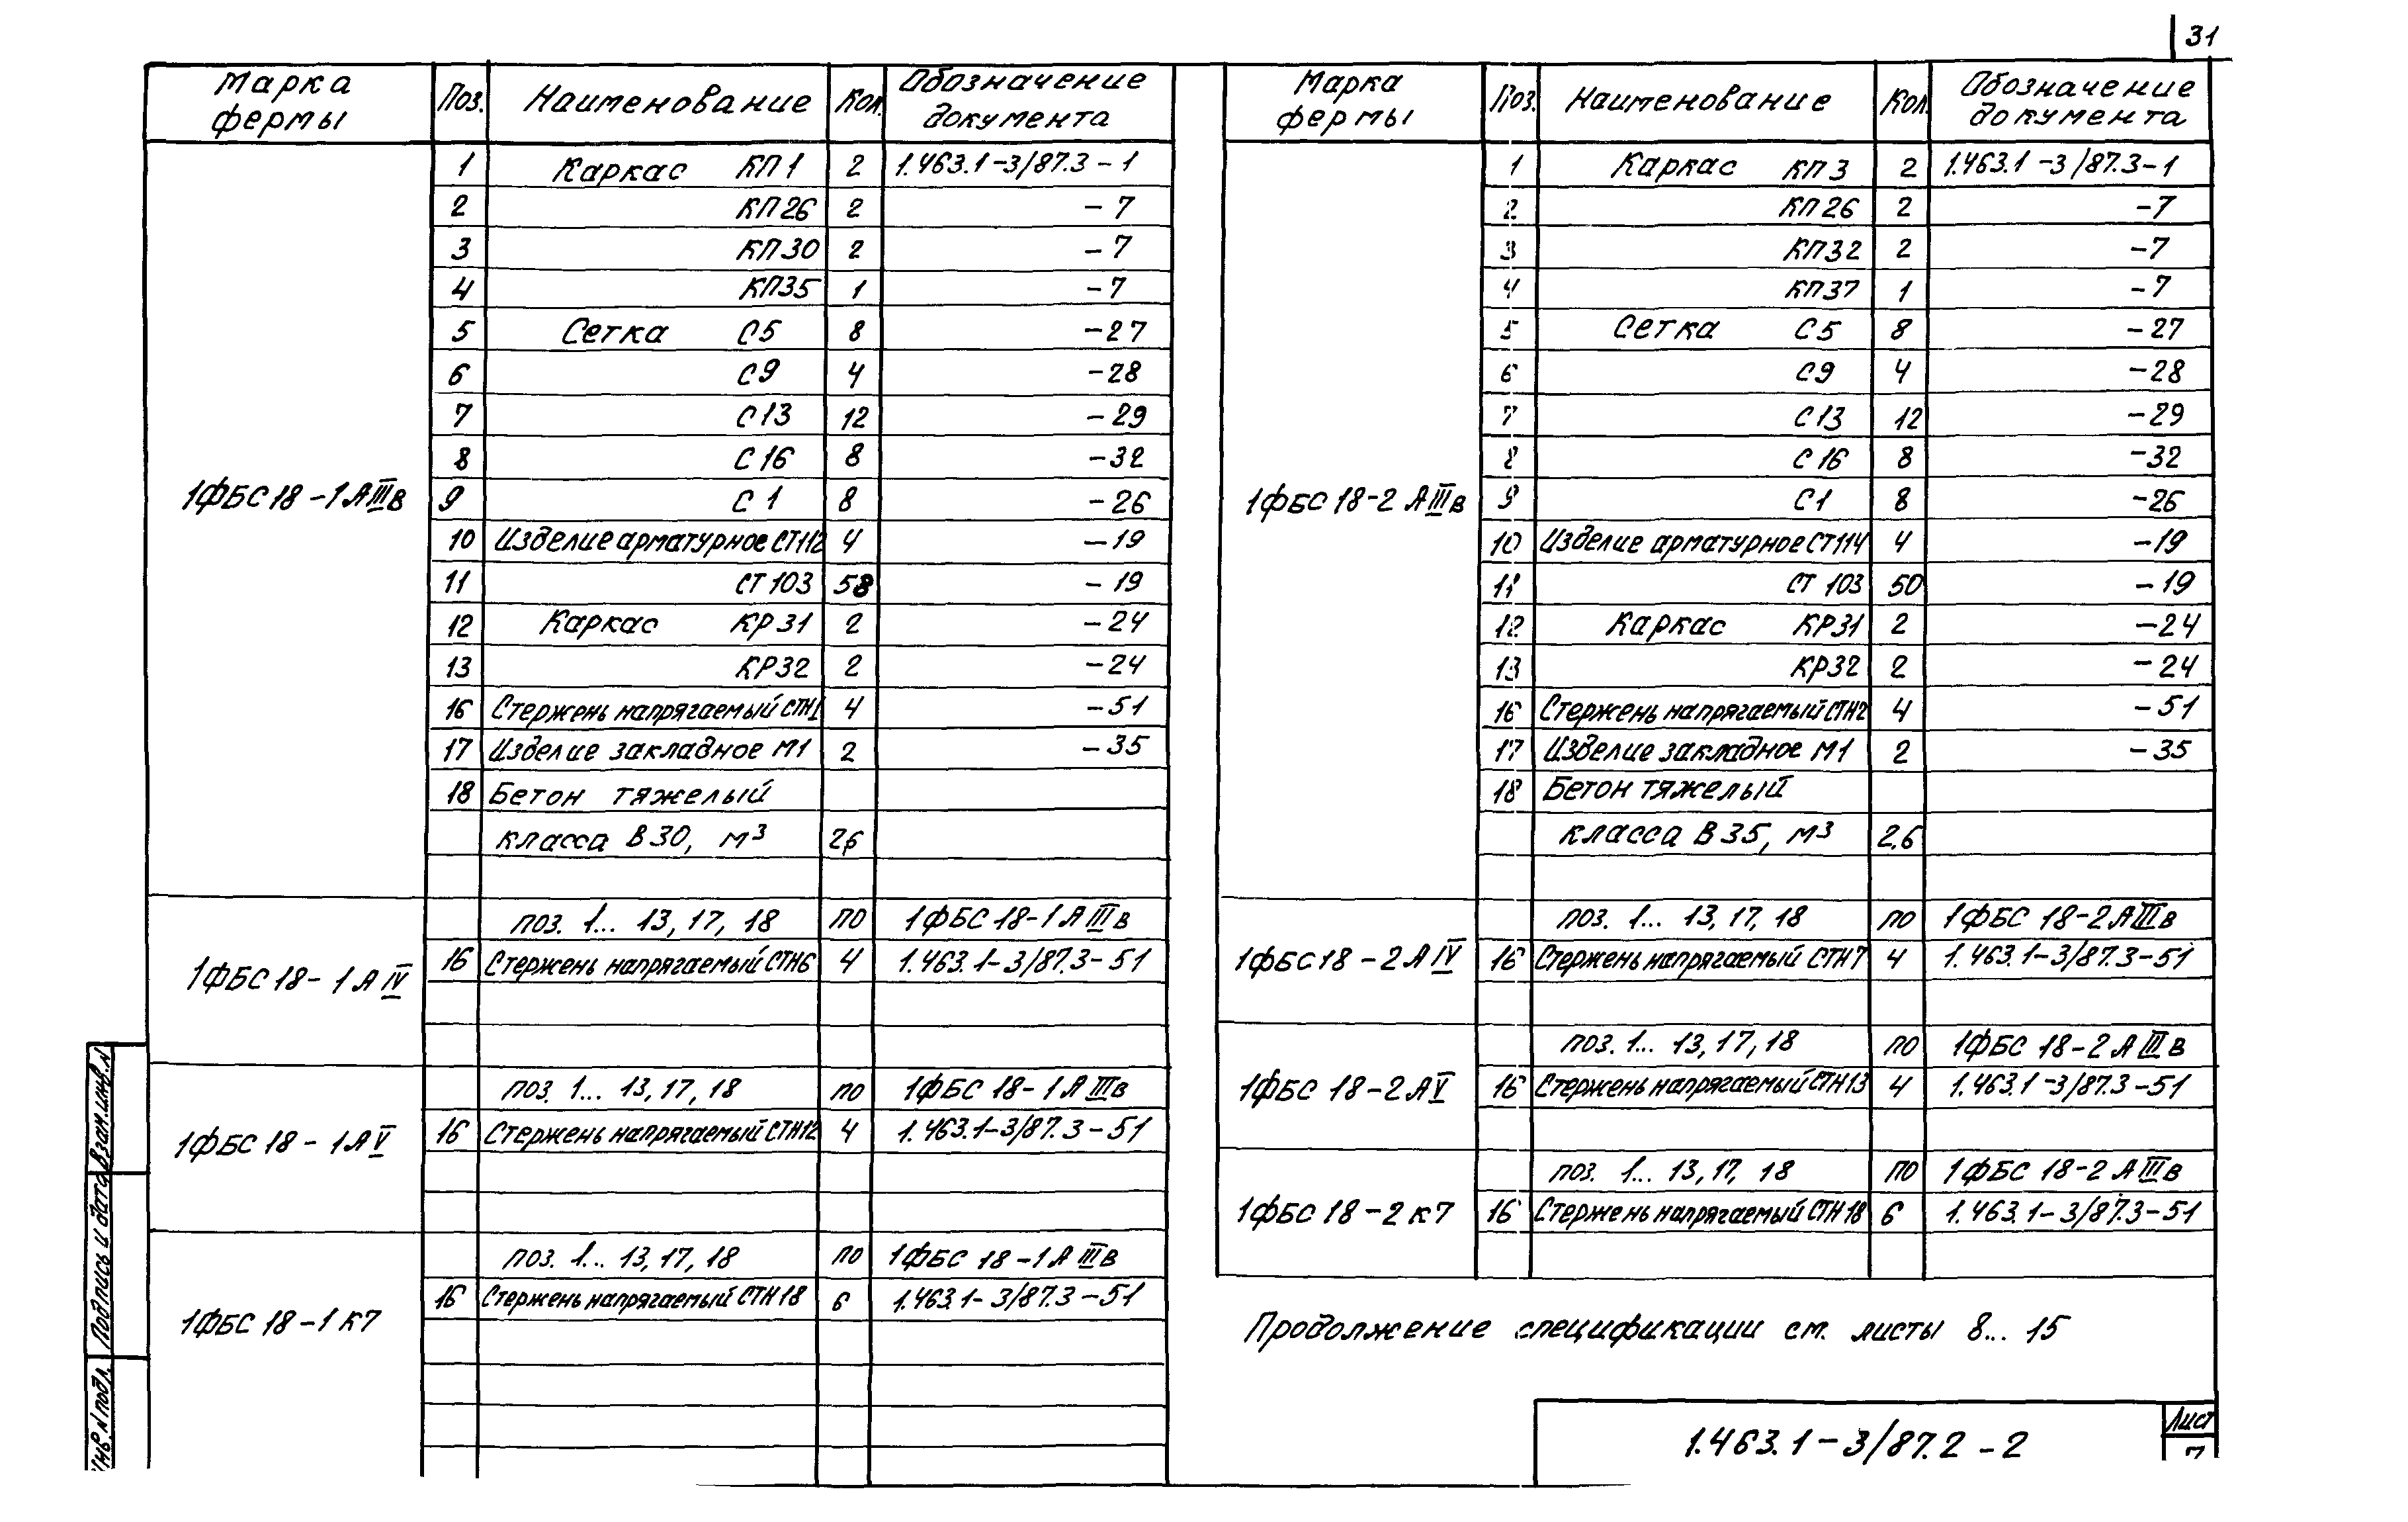 31
Марка фермы Поз. Наименование Кол. Обозначение документа
1ФБС 18-1АIIIв
1 Каркас КП1 2 1.463.1-3/87.3-1
2 КП26 2 -7
3 КП30 2 -7
4 КП35 1 -7
5 Сетка С5 8 -27
6 С9 4 -28
7 С13 12 -29
8 С16 8 -32
9 С1 8 -26
10 Изделие арматурное СТ112 4 -19
11 СТ103 58 -19
12 Каркас КР31 2 -24
13 КР32 2 -24
16 Стержень напрягаемый СТН1 4 -51
17 Изделие закладное М1 2 -35
18 Бетон тяжелый
класса В30, м³ 2,6
1ФБС 18-1АIV
поз. 1... 13, 17, 18 по 1ФБС 18-1АIIIв
16 Стержень напрягаемый СТН6 4 1.463.1-3/87.3-51
1ФБС 18-1АV
поз. 1... 13, 17, 18 по 1ФБС 18-1АIIIв
16 Стержень напрягаемый СТН12 4 1.463.1-3/87.3-51
1ФБС 18-1К7
поз. 1... 13, 17, 18 по 1ФБС 18-1АIIIв
16 Стержень напрягаемый СТН18 6 1.463.1-3/87.3-51
Марка фермы Поз. Наименование Кол. Обозначение документа
1ФБС 18-2АIIIв
1 Каркас КП3 2 1.463.1-3/87.3-1
2 КП26 2 -7
3 КП32 2 -7
4 КП37 1 -7
5 Сетка С5 8 -27
6 С9 4 -28
7 С13 12 -29
8 С16 8 -32
9 С1 8 -26
10 Изделие арматурное СТ114 4 -19
11 СТ103 50 -19
12 Каркас КР31 2 -24
13 КР32 2 -24
16 Стержень напрягаемый СТН2 4 -51
17 Изделие закладное М1 2 -35
18 Бетон тяжелый
класса В35, м³ 2,6
1ФБС 18-2АIV
поз. 1... 13, 17, 18 по 1ФБС 18-2АIIIв
16 Стержень напрягаемый СТН7 4 1.463.1-3/87.3-51
1ФБС 18-2АV
поз. 1... 13, 17, 18 по 1ФБС 18-2АIIIв
16 Стержень напрягаемый СТН13 4 1.463.1-3/87.3-51
1ФБС 18-2К7
поз. 1... 13, 17, 18 по 1ФБС 18-2АIIIв
16 Стержень напрягаемый СТН18 6 1.463.1-3/87.3-51
Продолжение спецификации см. листы 8... 15
1.463.1-3/87.2-2
Лист
7
Взам.инв.N
Подпись и дата
Инв.N подл.